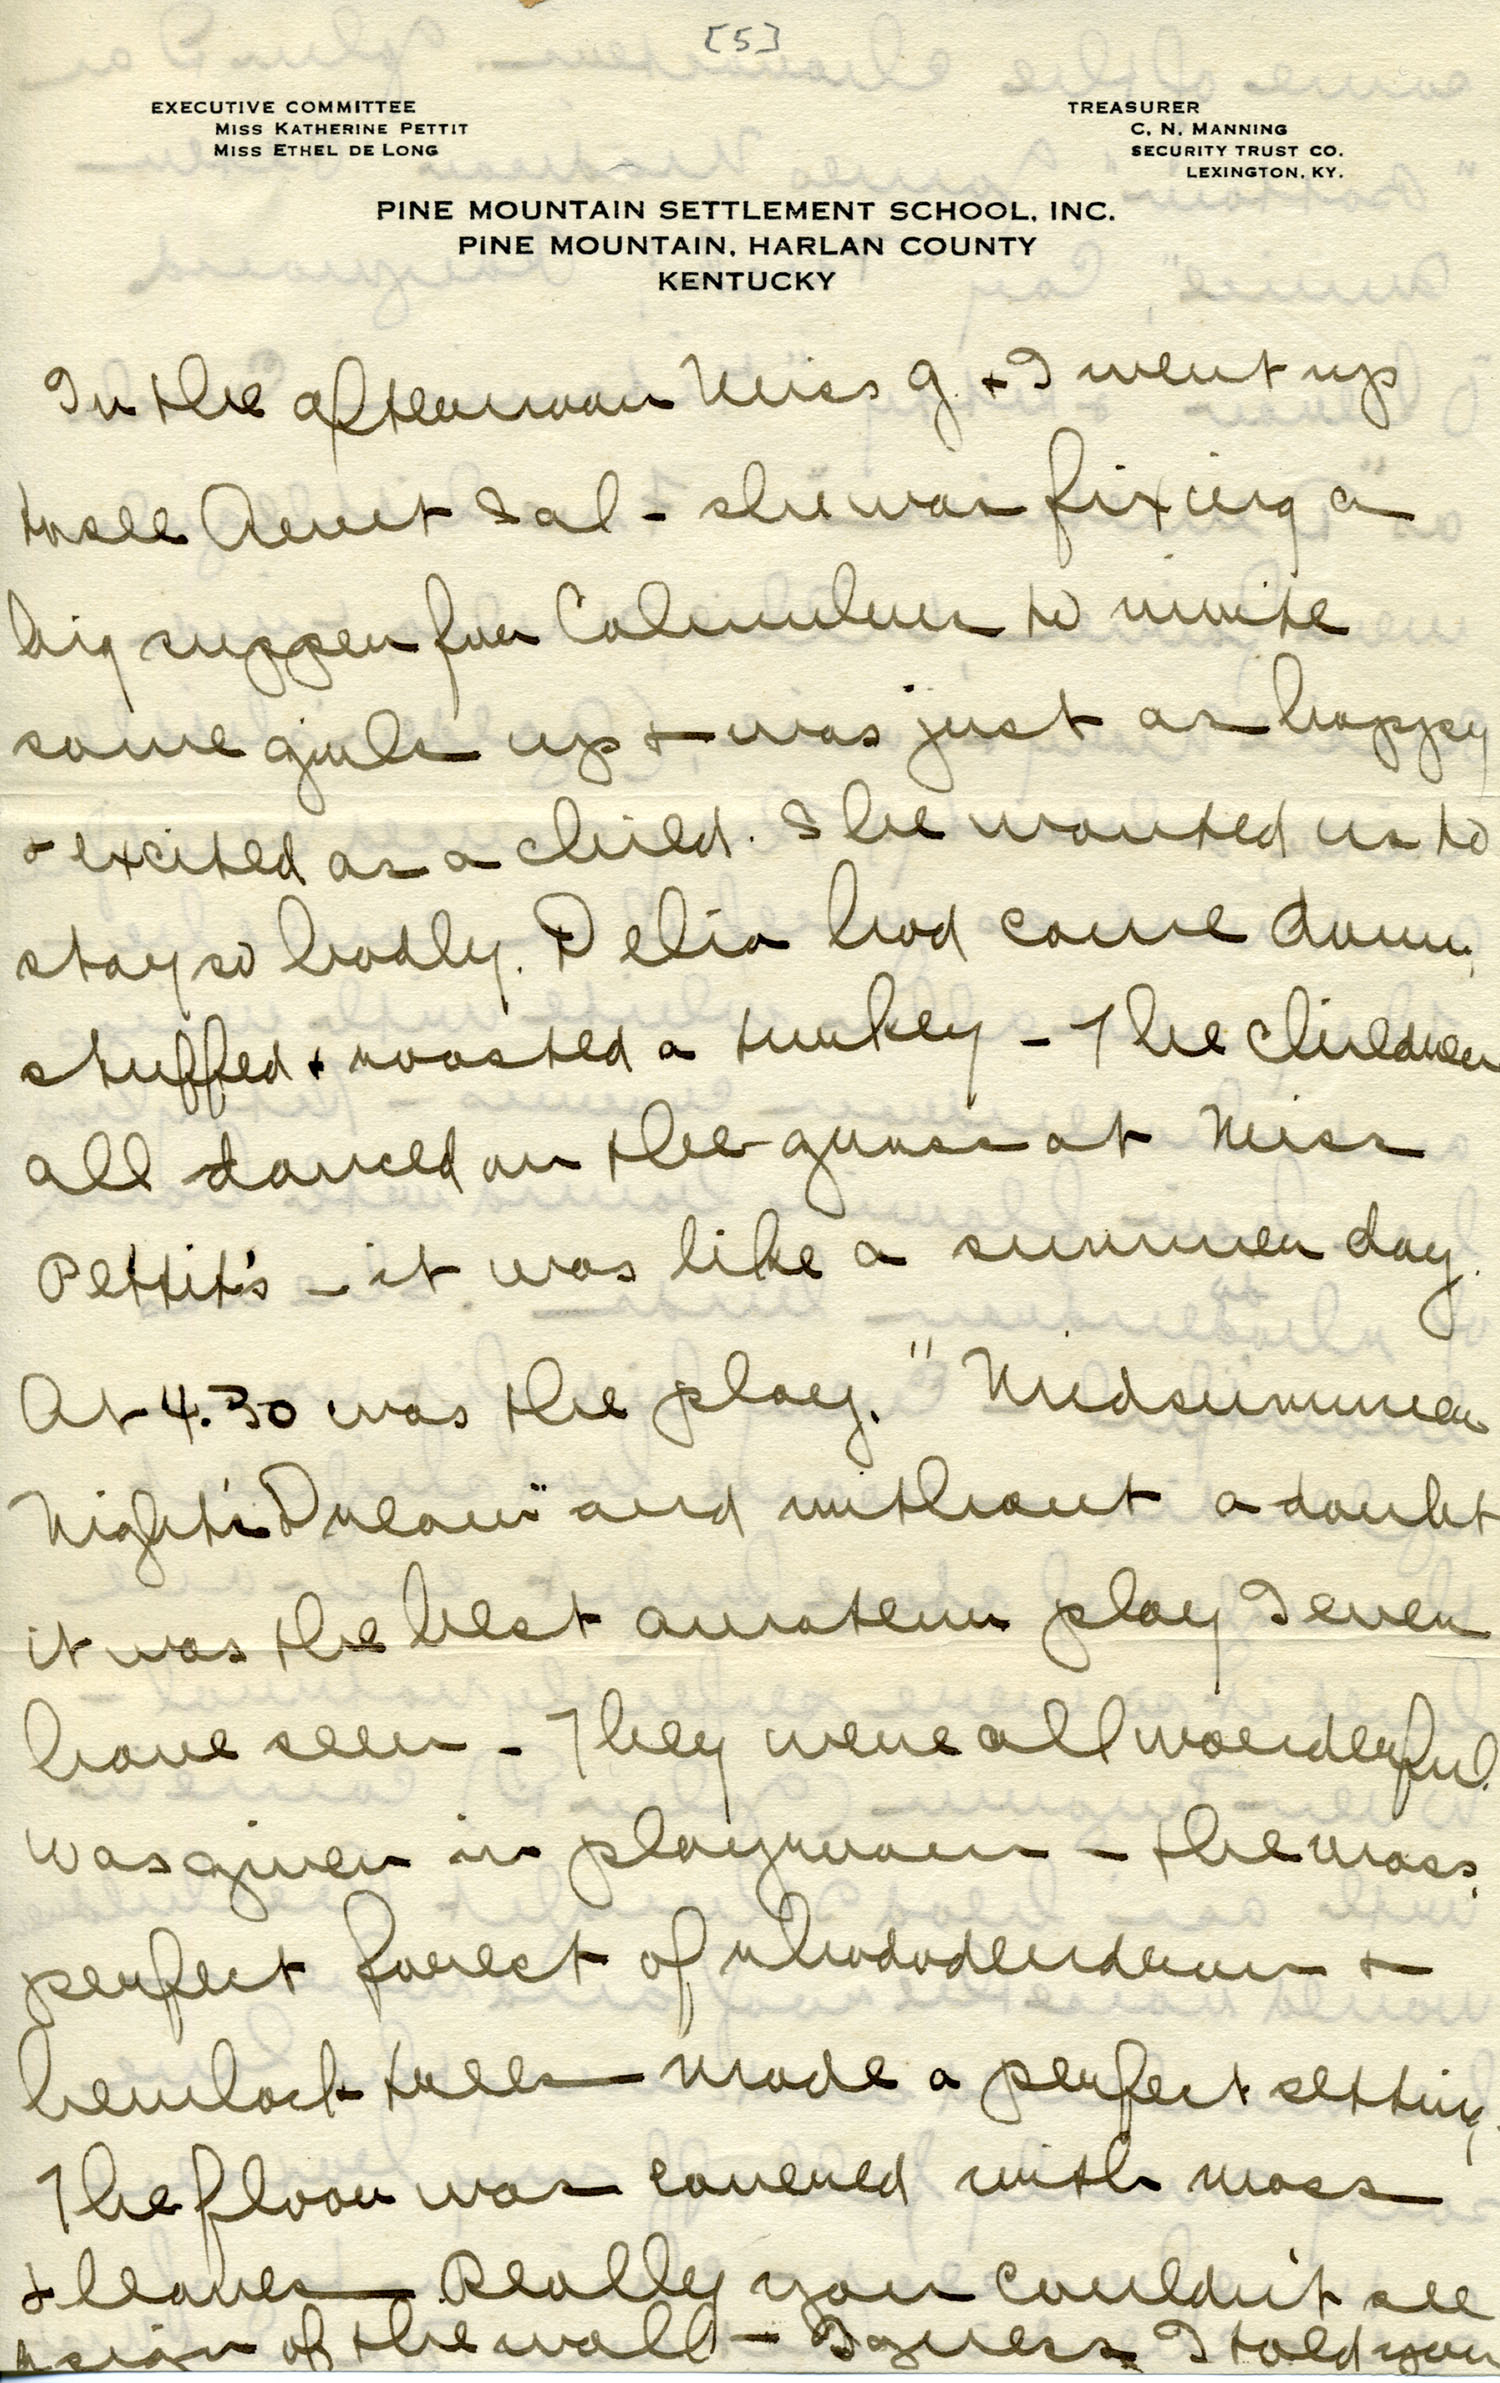 [5]
EXECUTIVE COMMITTEE
MISS KATHERINE PETTIT
MISS ETHEL DE LONG
TREASURER
C. N. MANNING
SECURITY TRUST CO.
LEXINGTON, KY.
PINE MOUNTAIN SETTLEMENT SCHOOL, INC.
PINE MOUNTAIN, HARLAN COUNTY
KENTUCKY
In the afternoon Miss G. & I went up
to see Aunt Sal - she was "fixing" a
big supper for Columbus to invite
some girls up & was just as happy
& excited as a child. She wanted us to
stay so badly. Delia had come down,
stuffed & roasted a turkey - The children
all danced on the grass at Miss
Pettit's - it was like a summer day.
At 4.30 was the play. "Midsummer
Night's Dream" and without a doubt
it was the best amateur play I ever
have seen - They were all wonderful.
Was given in playroom - the moss,
perfect forest of rhododendron &
hemlock trees made a perfect setting.
The floor was covered with moss
& leaves Really you couldn't see
a sign of the wall - I guess I told you